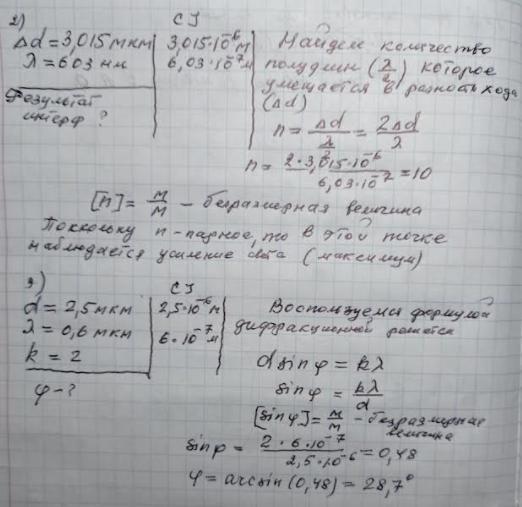 2)
СI
Δd = 3,015 мкм | 3,015·10⁻⁶ м
λ = 603 нм | 6,03·10⁻⁷ м
Результат
интерф ?
Найдем количество
полудлин (λ/2) которое
умещается в разность хода
(Δd)
n = Δd/(λ/2) = 2Δd/λ
n = 2·3,015·10⁻⁶/6,03·10⁻⁷ = 10
[n] = м/м – безразмерная величина
Поскольку n - парное, то в этой точке
наблюдается усиление света (максимум)
3)
СI
d = 2,5 мкм | 2,5·10⁻⁶ м
λ = 0,6 мкм | 6·10⁻⁷ м
k = 2
φ - ?
Воспользуемся формулой
дифракционной решетки
d sin φ = kλ
sin φ = kλ/d
[sin φ] = м/м – безразмерная
величина
sin φ = 2·6·10⁻⁷/2,5·10⁻⁶ = 0,48
φ = arcsin (0,48) = 28,7°